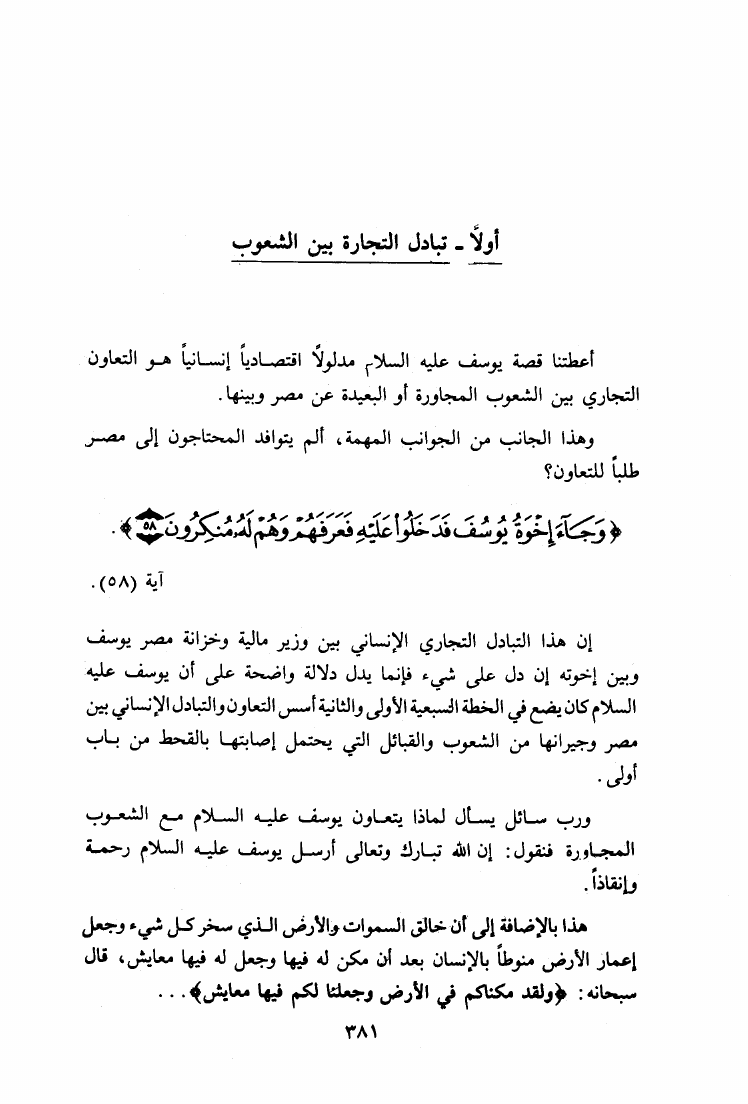 أولاً - تبادل التجارة بين الشعوب
أعطتنا قصة يوسف عليه السلام مدلولاً اقتصادياً إنسانياً هو التعاون
التجاري بين الشعوب المجاورة أو البعيدة عن مصر وبينها.
وهذا الجانب من الجوانب المهمة، ألم يتوافد المحتاجون إلى مصر
طلباً للتعاون؟
﴿وَجَآءَ إِخْوَةُ يُوسُفَ فَدَخَلُواْ عَلَيْهِ فَعَرَفَهُمْ وَهُمْ لَهُۥ مُنكِرُونَ ٥٨﴾.
آية (٥٨).
إن هذا التبادل التجاري الإنساني بين وزير مالية وخزانة مصر يوسف
وبين إخوته إن دل على شيء فإنما يدل دلالة واضحة على أن يوسف عليه
السلام كان يضع في الخطة السبعية الأولى والثانية أسس التعاون والتبادل الإنساني بين
مصر وجيرانها من الشعوب والقبائل التي يحتمل إصابتها بالقحط من باب
أولى.
ورب سائل يسأل لماذا يتعاون يوسف عليه السلام مع الشعوب
المجاورة فنقول: إن الله تبارك وتعالى أرسل يوسف عليه السلام رحمة
وإنقاذاً.
هذا بالإضافة إلى أن خالق السموات والأرض الذي سخر كل شيء وجعل
إعمار الأرض منوطاً بالإنسان بعد أن مكن له فيها وجعل له فيها معايش، قال
سبحانه: ﴿ولقد مكناكم في الأرض وجعلنا لكم فيها معايش﴾...
٣٨١